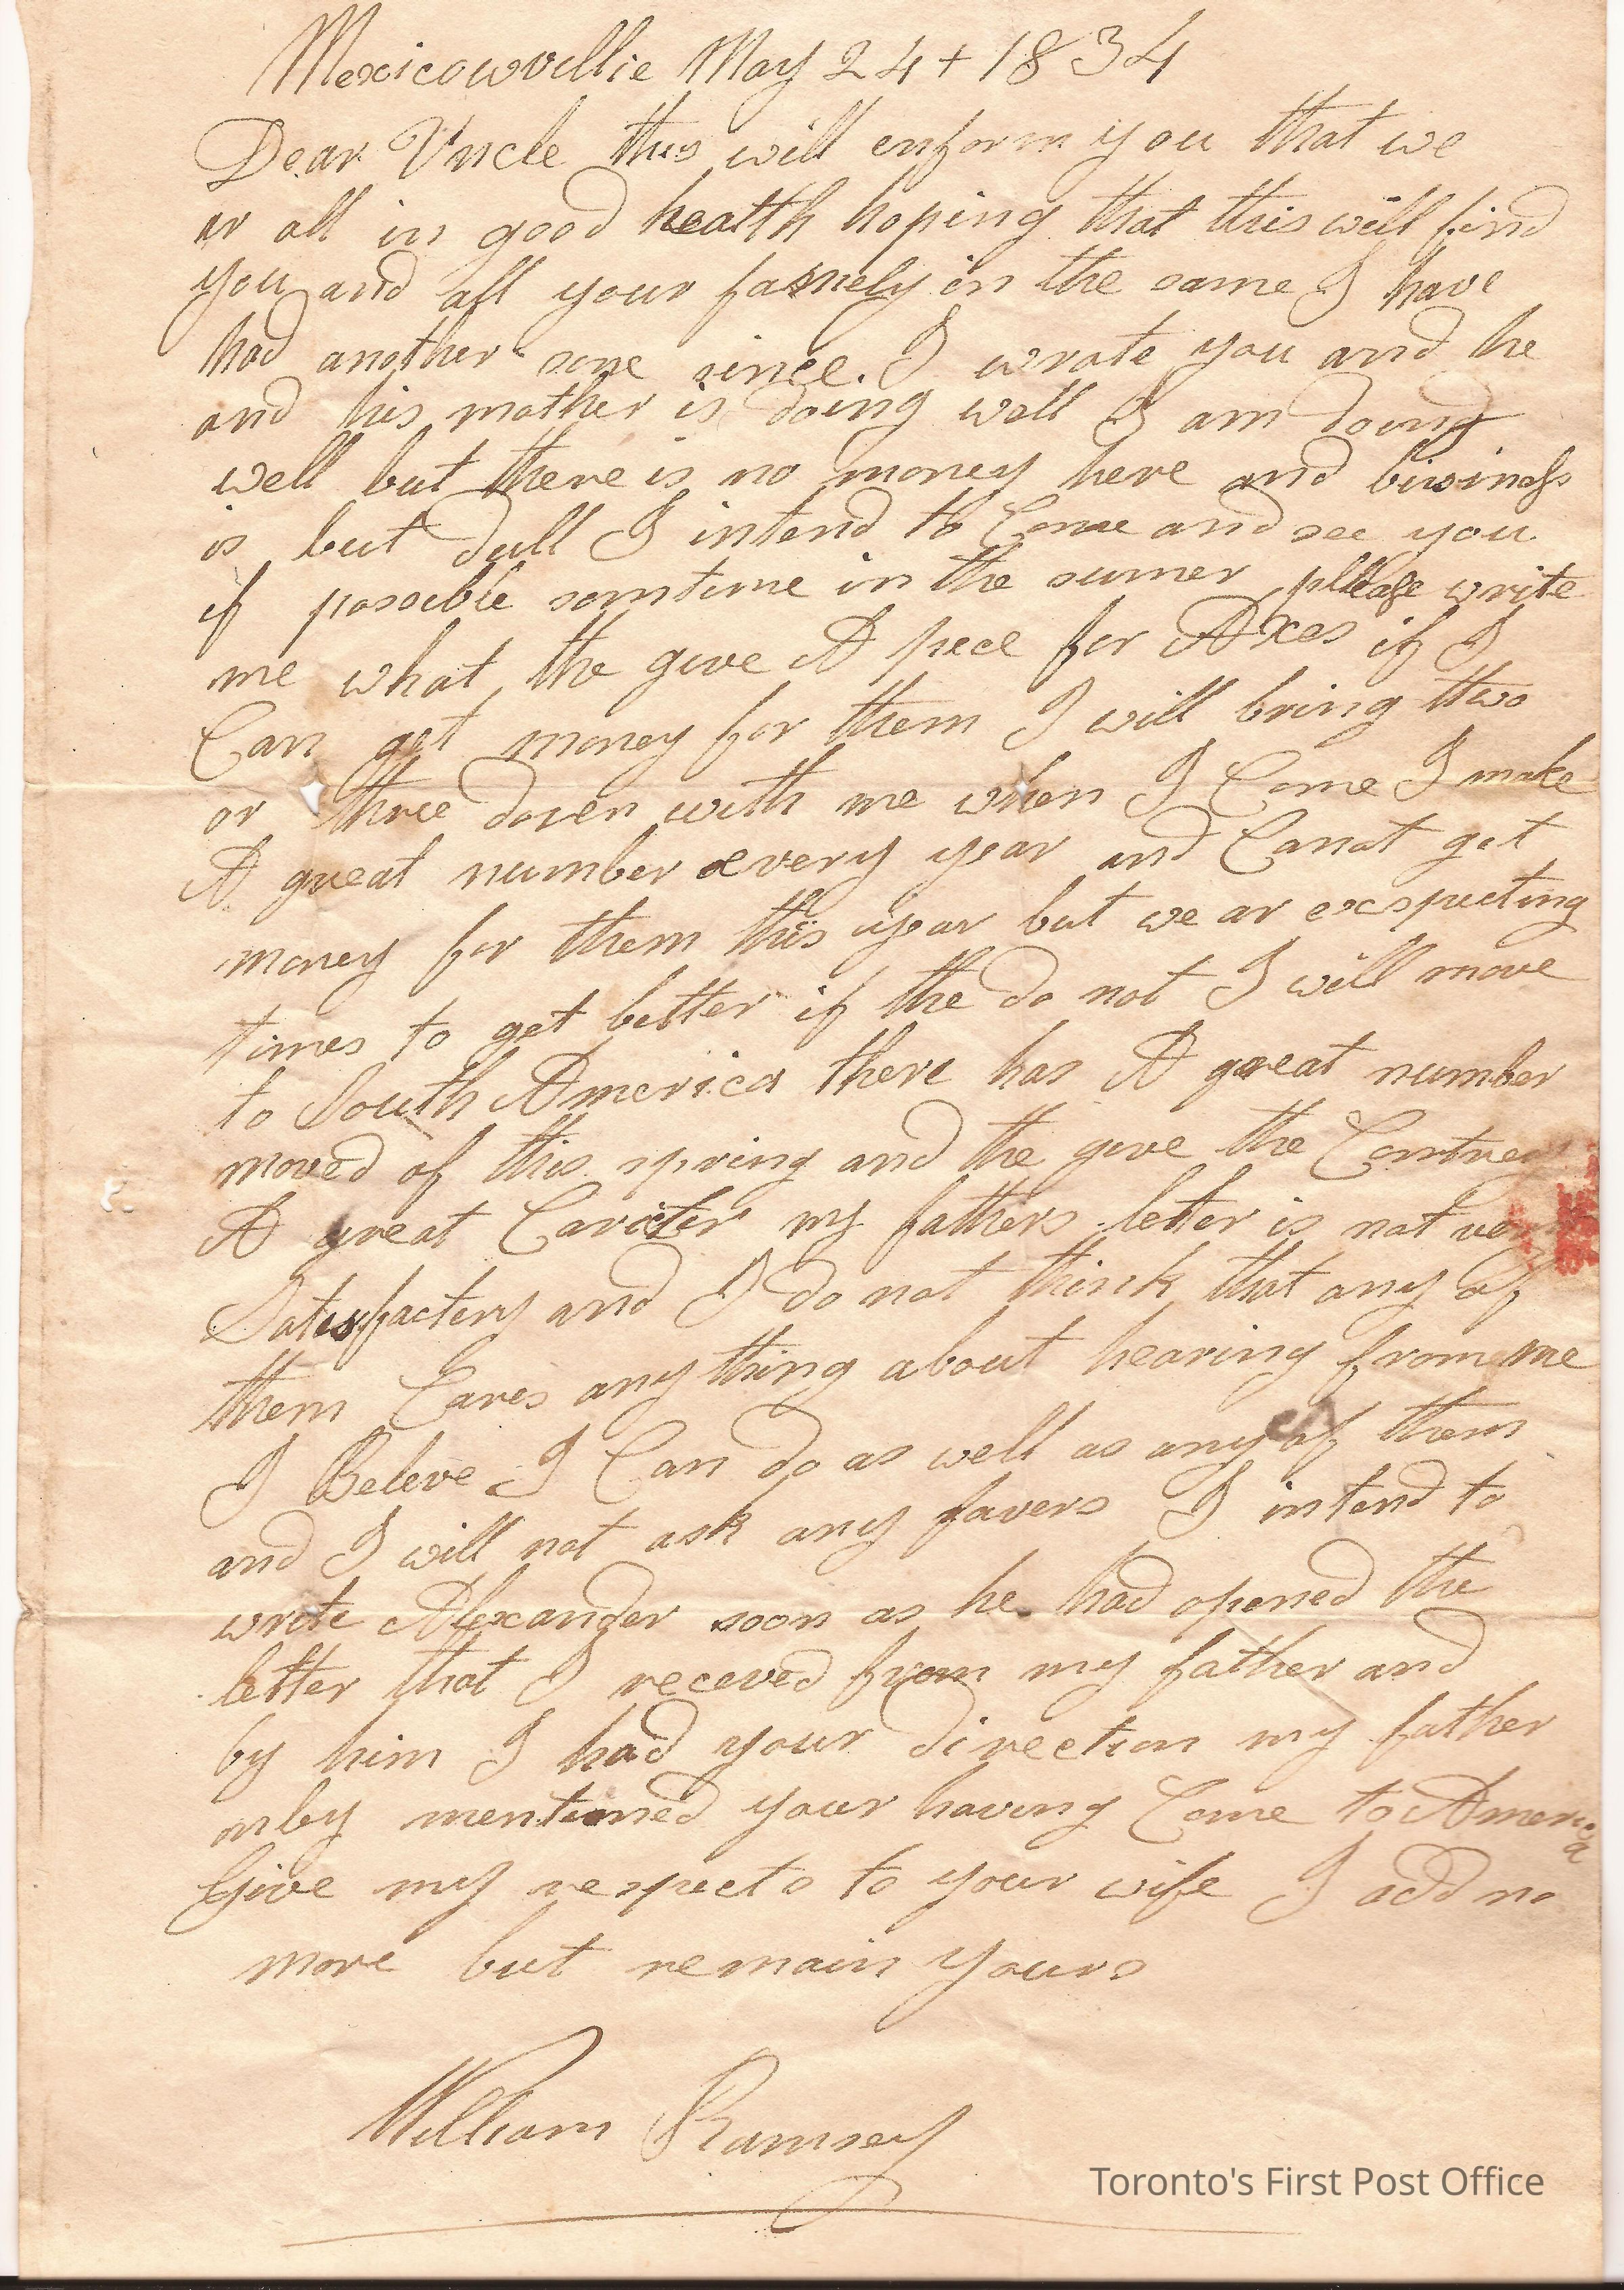 Mexicowvillie May 24+ 1834
Dear Uncle this will enform you that we
ar all in good health hoping that this will find
you and all your famely in the same I have
had another sone since. I wrote you and he
and his mother is doing well I am doing
well but there is no money here and bisiness
is but dull I intend to Come and see you
if possible somtime in the sumer please write
me what the give A pece for Axes if I
Can get money for them I will bring two
or three dozen with me when I Come I make
A great number every year and Canot get
money for them this year but we ar exspecting
times to get better if the do not I will move
to South America there has A great number
moved of this spring and the give the Contrey
A great Caricter my fathers letter is not very
Satisfactery and I do not think that any of
them Cares any thing about hearing from me
I Beleve I Can do as well as any of them
and I will not ask any favers I intend to
write Alexander soon as he had opened the
letter that I receved from my father and
by him I had your direction my father
onley mentioned your having Come to America
Give my respects to your wife I add no
more but remain yours
William Ramsey
Toronto's First Post Office